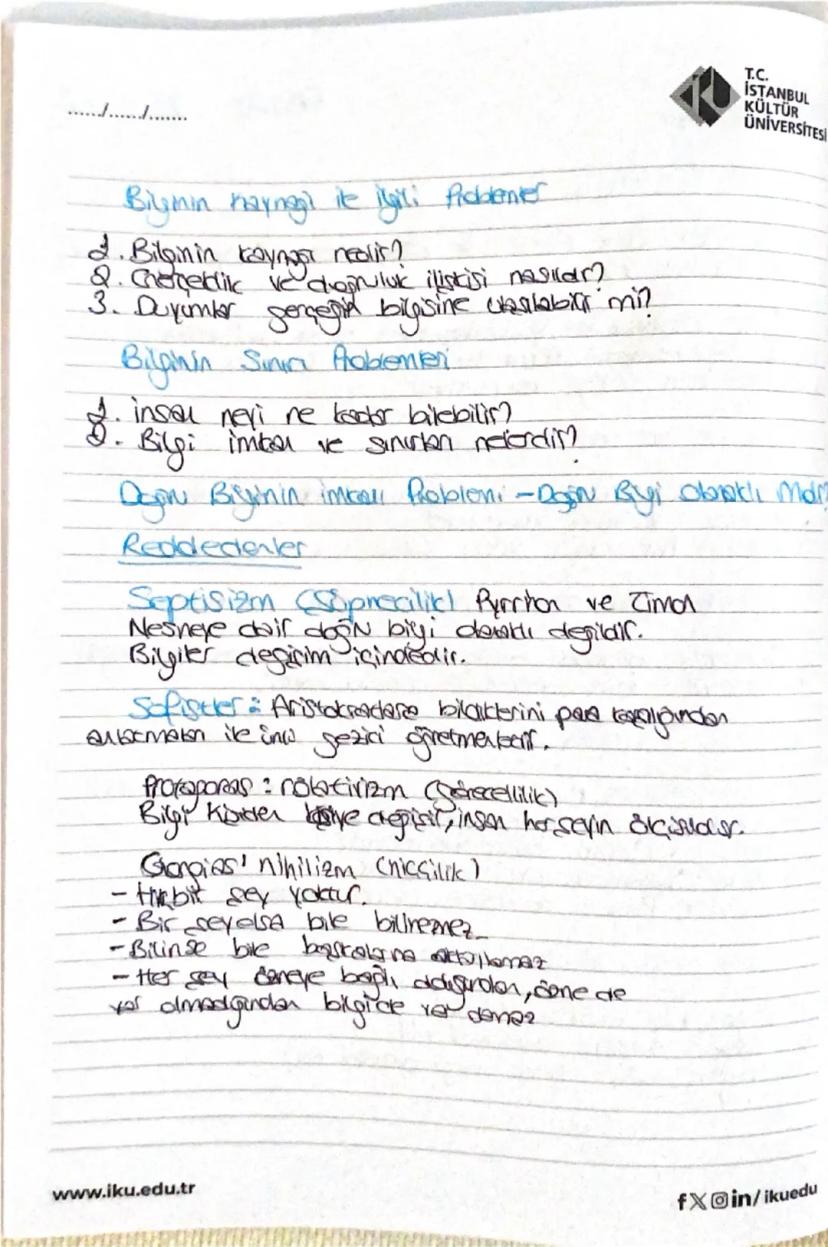 ....../....../.......
T.C.
İSTANBUL
KÜLTÜR
ÜNİVERSİTESİ
Bilginin kaynağı ile ilgili Problemler
1. Bilginin kaynağı nedir?
2. Gerçeklik ve doğruluk ilişkisi nasıldır?
3. Duyumlar gerçeğin bilgisine ulaşılabilir mi?
Bilginin Sınırı Problemleri
1. insan neyi ne kadar bilebilir?
2. Bilgi imkanı ve sınırları nelerdir?
Doğru Bilginin imkanı Problemi - Doğru Bilgi Olanaklı Mıdır?
Reddedenler
Septisizm (Şüphecilik) Pyrrhon ve Timon
Nesneye dair doğru bilgi olanaklı değildir.
Bilgiler değişim içindedir.
Sofistler: Aristokradlara bildiklerini para karşılığından
ile ünlü gezici öğretmenlerdir.
Protagoras: rölativizm (Görecelilik)
Bilgi kişiden kişiye değişir, insan her şeyin ölçüsüdür.
Gorgias' nihilizm (hiççilik)
- Hiçbir şey yoktur.
- Bir şey olsa bile bilinemez
- Bilinse bile başkalarına aktarılamaz
- Her şey özneye bağlı olduğundan, özne de
var olmadığından bilgide var olamaz
www.iku.edu.tr
/ikuedu